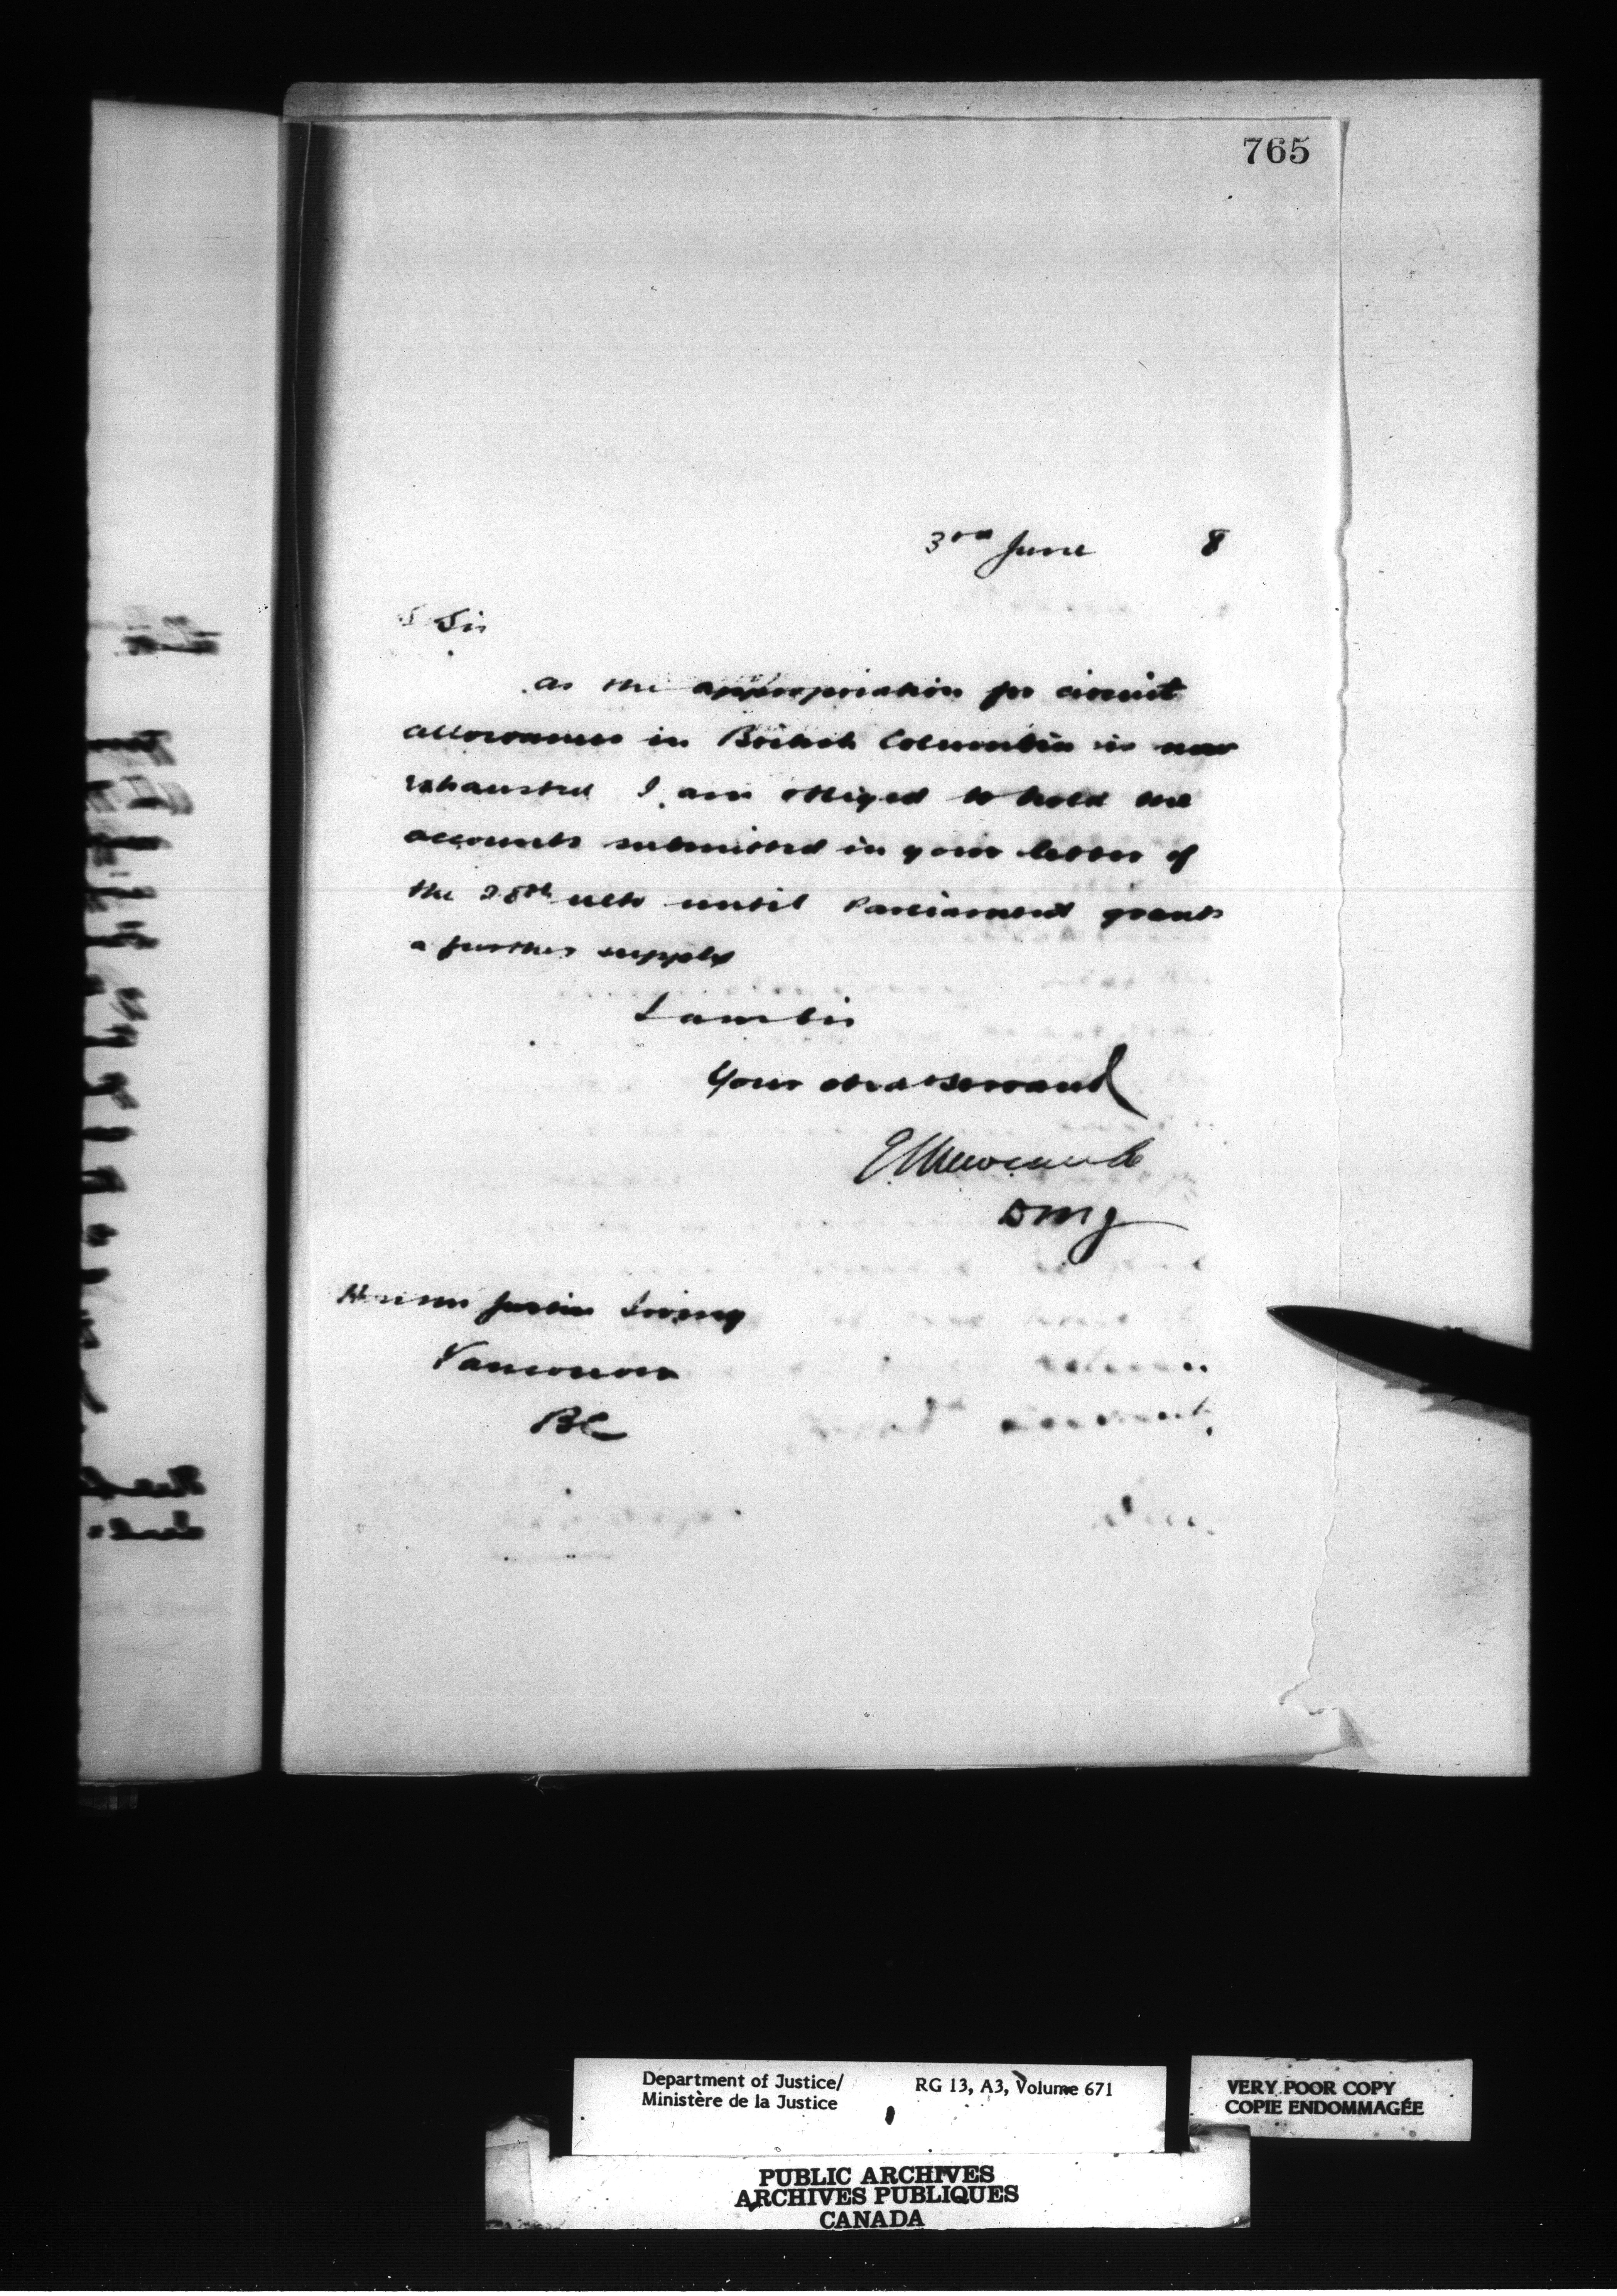 765
3rd June 8
Sir
As the appropriation for circuit
allowances in British Columbia is now
exhausted I am obliged to hold the
accounts submitted in your letter of
the 28th ulto until Parliament grants
a further supply
I am Sir
Your obed servant
E L Newcombe
DMJ
Justice Irving
Vancouver
BC
Department of Justice/
Ministère de la Justice
RG 13, A3, Volume 671
VERY POOR COPY
COPIE ENDOMMAGÉE
PUBLIC ARCHIVES
ARCHIVES PUBLIQUES
CANADA